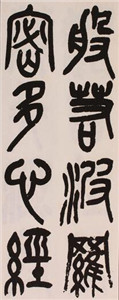 般若波羅
密多心經